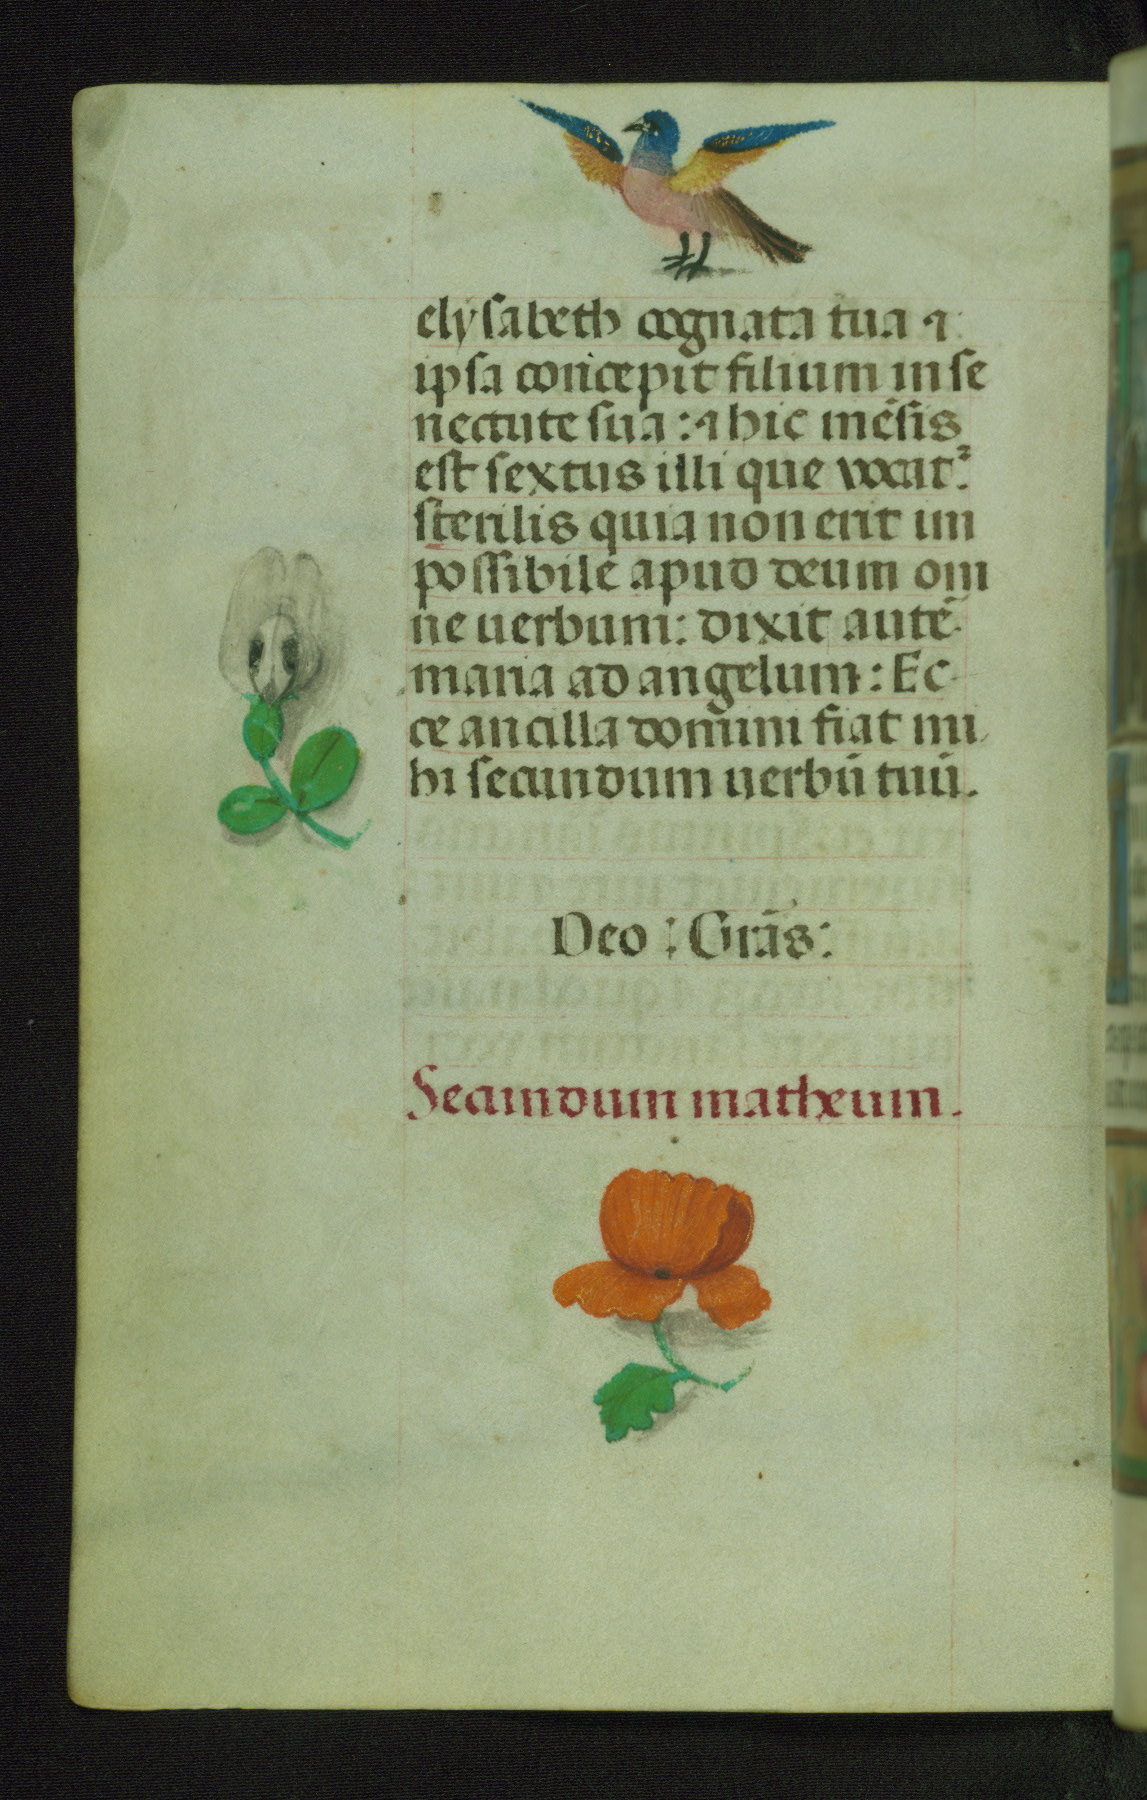 elysabeth cognata tua ⁊
ipsa concepit filium in se
nectute sua : ⁊ hic mēsis
est sextus illi que vocat᷑.
sterilis quia non erit im
possibile apud deum om
ne uerbum: dixit autē
maria ad angelum : Ec
ce ancilla domini fiat mi
hi secundum uerbū tuū.
Deo : Grās:
Secundum matheum.